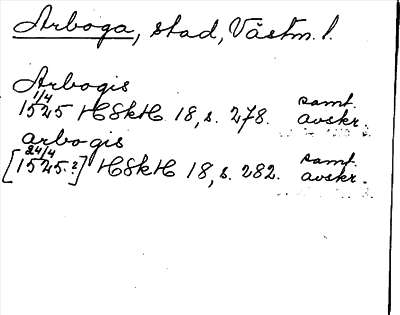 Arboga, stad, Västm. l.
Arbogis
1/4
1525 HSkH 18, s. 278. samt. avskr.
arbogis
24/4
[1525.?] HSkH 18, s. 282. samt. avskr.